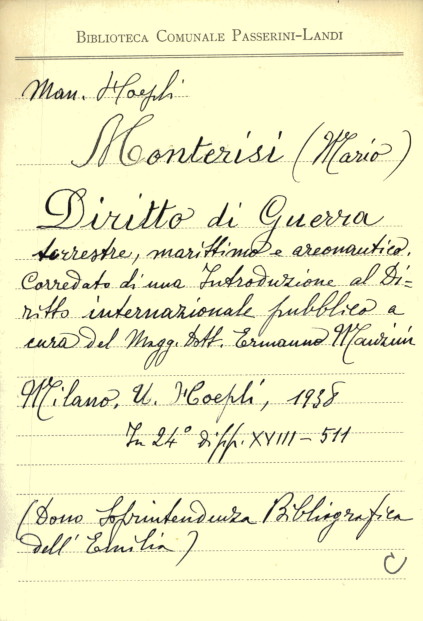 BIBLIOTECA COMUNALE PASSERINI-LANDI
Man. Hoepli
Monterisi (Mario)
Diritto di Guerra
terrestre, marittimo e areonautico.
Corredato di una Introduzione al Di=
ritto internazionale pubblico a
cura del Magg. Dott. Ermanno
Milano. U. Hoepli, 1938
In 24° di pp. XVIII - 511
(Dono Soprintendenza Bibliografica
dell'Emilia)
C